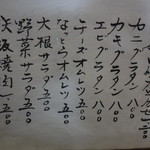 カニグラタン 八〇〇
カキグラタン 八〇〇
エビグラタン 八〇〇
チーズオムレツ 五〇〇
なっとうオムレツ 五〇〇
大根サラダ 五〇〇
野菜サラダ 五〇〇
焼肉 五〇〇